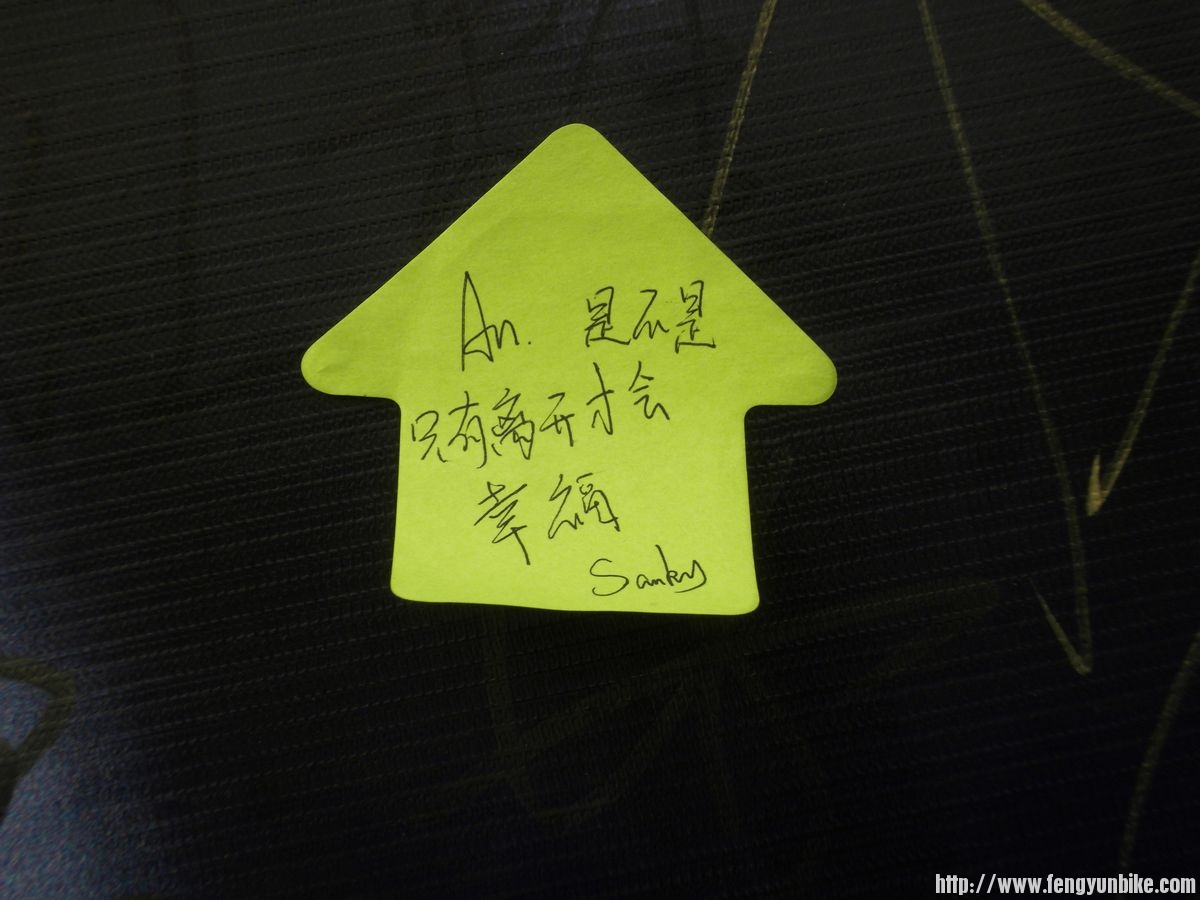 An. 是不是
只有离开才会
幸福
Sanky
http://www.fengyunbike.com